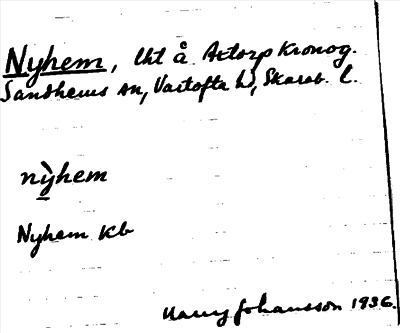 Nyhem, lht å Åttorp Kronog.
Sandhems sn, Vartofta hd, Skarab. l.
nỳhem
Nyhem Kb
Harry Johansson 1936.